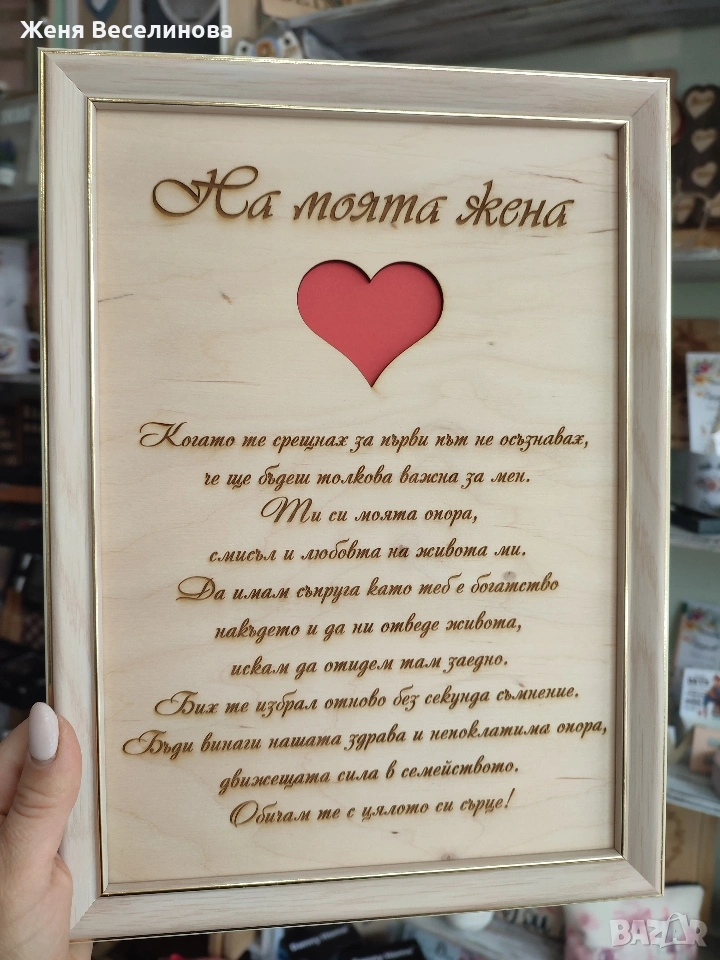 Женя Веселинова
На моята жена
Когато те срещнах за първи път не осъзнавах,
че ще бъдеш толкова важна за мен.
Ти си моята опора,
смисъл и любовта на живота ми.
Да имам съпруга като теб е богатство
накъдето и да ни отведе живота,
искам да отидем там заедно.
Бих те избрал отново без секунда съмнение.
Бъди винаги нашата здрава и непоклатима опора,
движещата сила в семейството.
Обичам те с цялото си сърце!
BAZAR